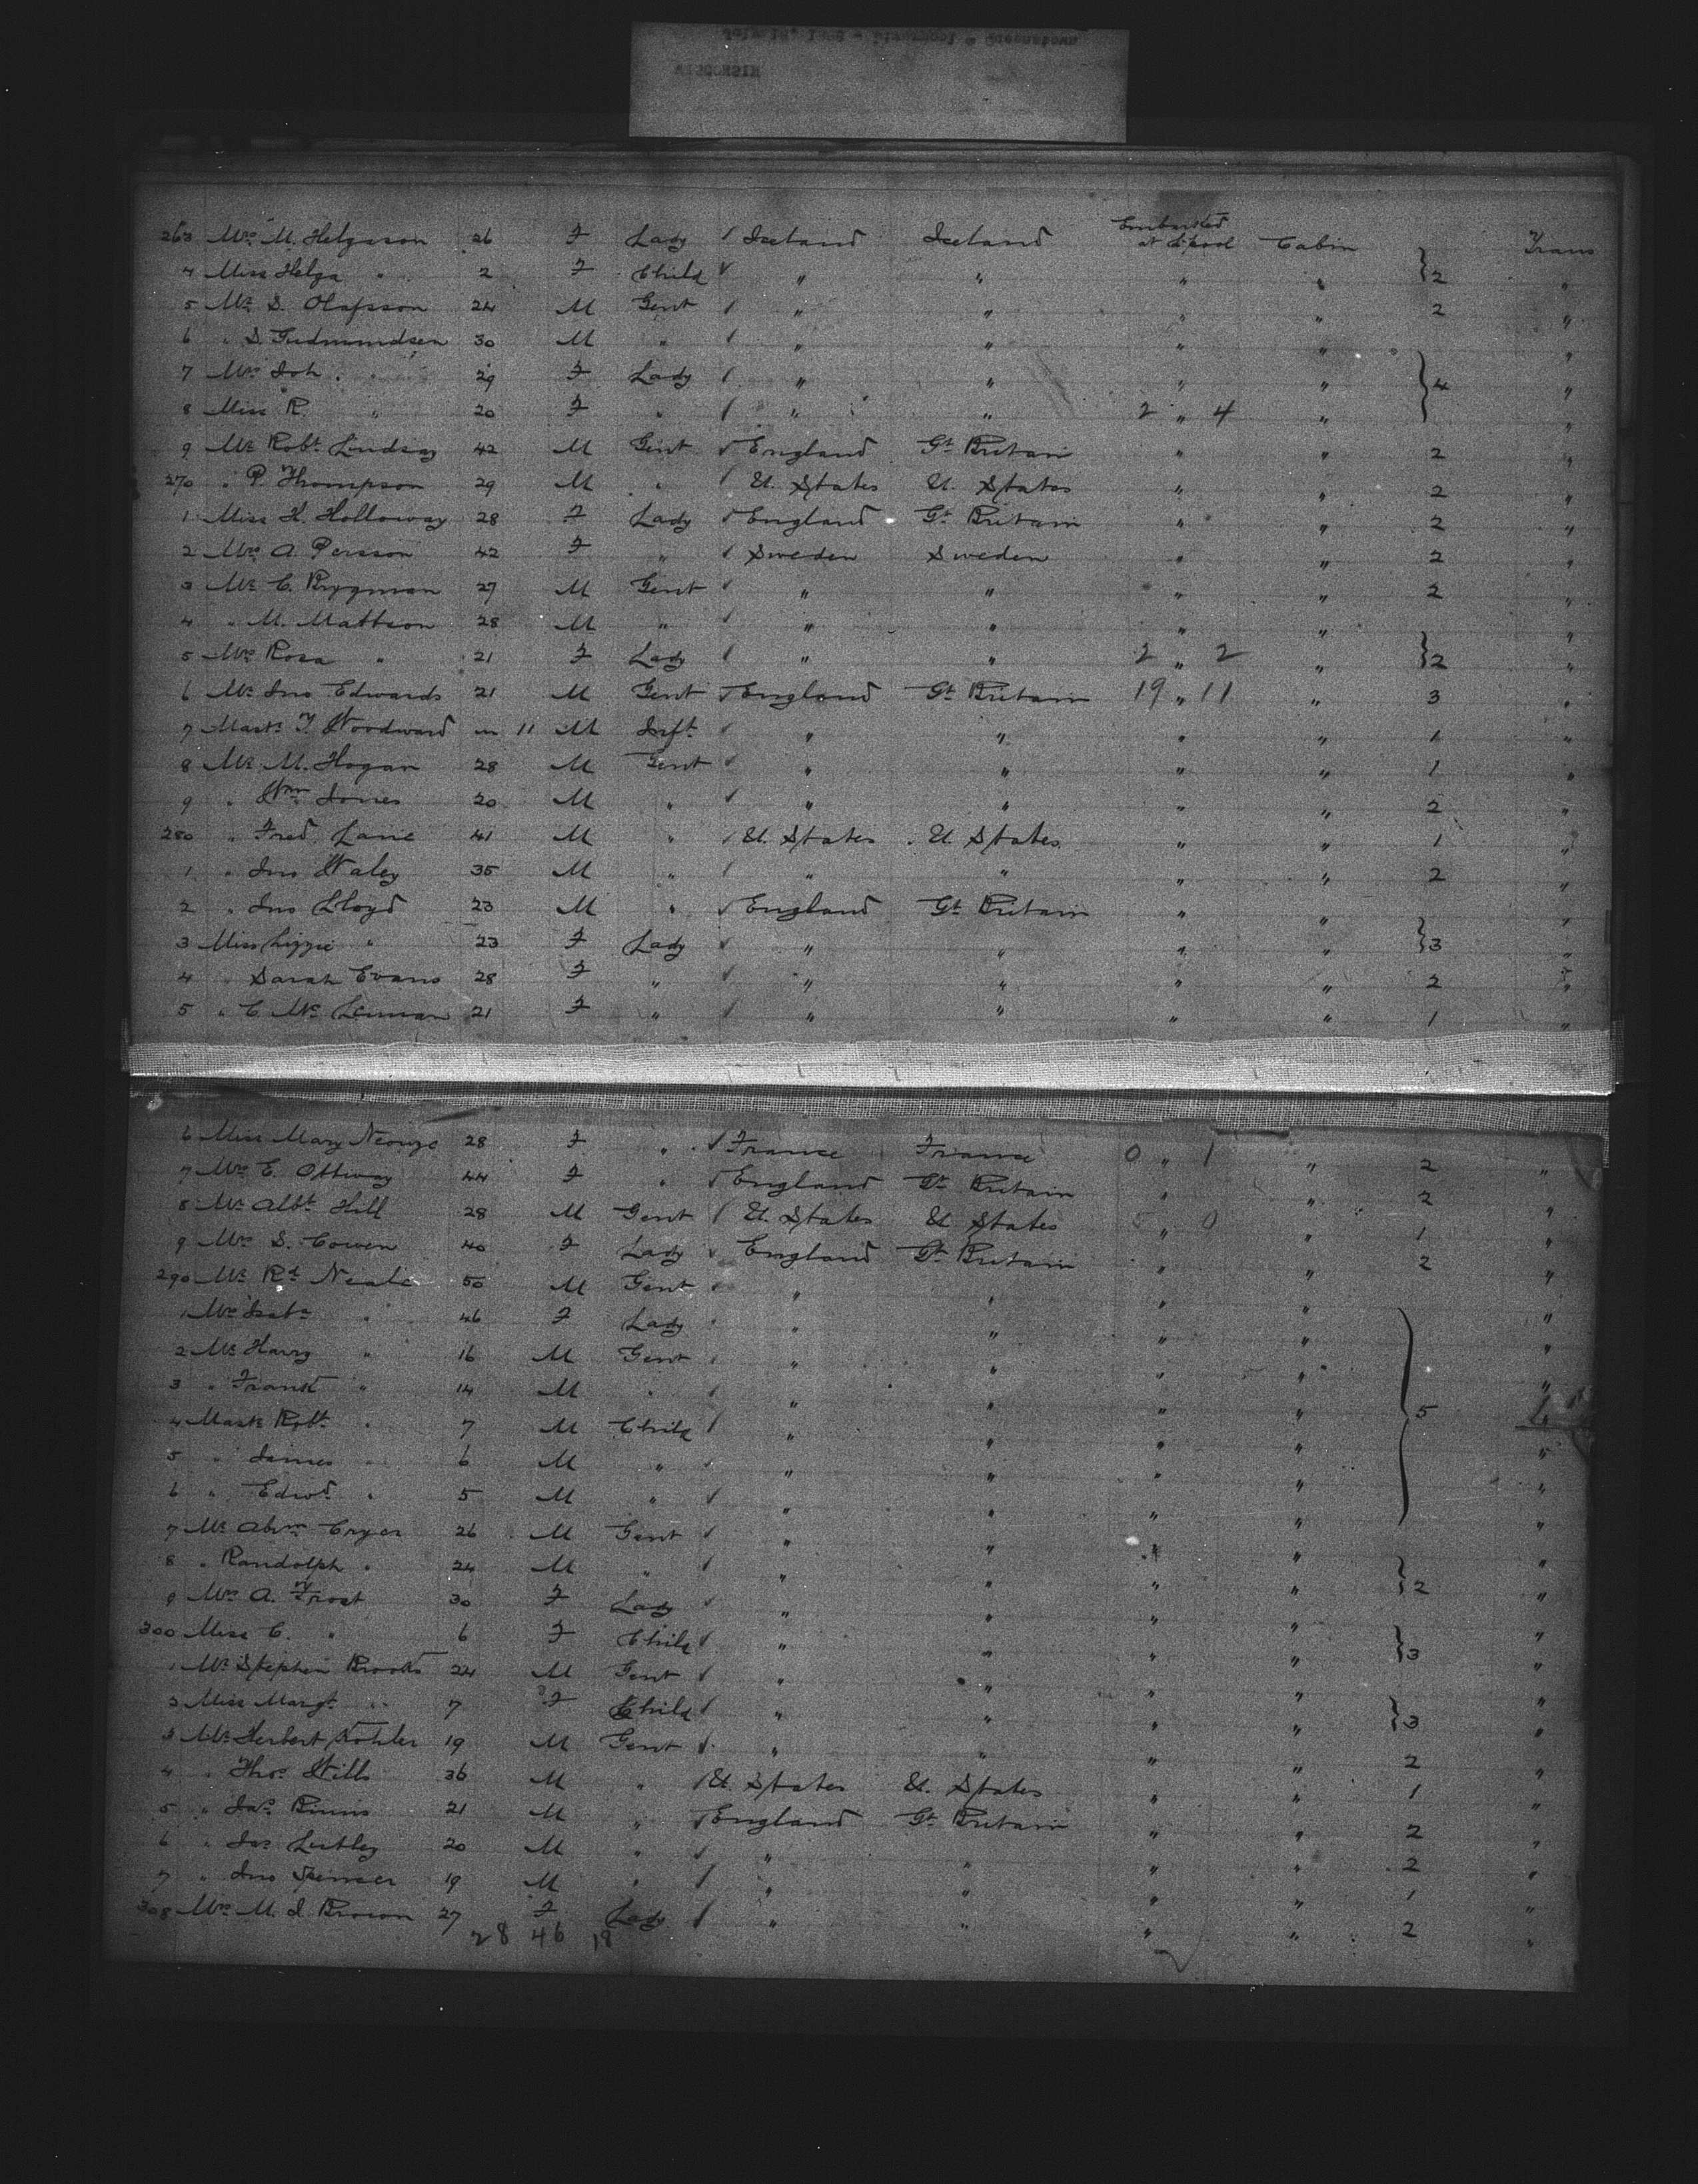 WISCONSIN
263 Mrs M. Helgason 26 F Lady Iceland Iceland Embarked at L'pool Cabin Trans
4 Miss Helga " 2 F Child " " " " 2 "
5 Mr S. Olafsson 24 M Gent " " " " 2 "
6 " S. Gudmundsen 30 M " " " " " "
7 Mrs Joh. " 29 F Lady " " " " 4 "
8 Miss R. " 20 F " " " 2 " 4 " "
9 Mr Robt Lindsay 42 M Gent England Gt Britain " " 2 "
270 " P. Thompson 29 M " U. States U. States " " 2 "
1 Miss H. Holloway 28 F Lady England Gt Britain " " 2 "
2 Mrs A. Persson 42 F " Sweden Sweden " " 2 "
3 Mr C. Brygman 27 M Gent " " " " 2 "
4 " M. Mattson 28 M " " " " " "
5 Mrs Rosa " 21 F Lady " " 2 " 2 " 2 "
6 Mr Jno Edwards 21 M Gent England Gt Britain 19 " 11 " 3 "
7 Mastr T. Woodward m 11 M Inft " " " " 1 "
8 Mr M. Hogan 28 M Gent " " " " 1 "
9 " Wm Jones 20 M " " " " " 2 "
280 " Fred Lane 41 M " U. States U. States " " 1 "
1 " Jno Waley 35 M " " " " " 2 "
2 " Jno Lloyd 23 M " England Gt Britain " " "
3 Miss Lizzie " 23 F Lady " " " " 3 "
4 " Sarah Evans 28 F " " " " " 2 "
5 " C. Mc 21 F " " " " " 1 "
6 Miss Mary 28 F " France France 0 " 1 " 2 "
7 Mrs E. Ottway 44 F " England Gt Britain " " 2 "
8 Mr Albt Hill 28 M Gent U. States U. States 5 " 0 " 1 "
9 Mrs S. Cowen 40 F Lady England Gt Britain " " 2 "
290 Mr Rd Neale 50 M Gent " " " " "
1 Mrs Isaba " 46 F Lady " " " " "
2 Mr Harry " 16 M Gent " " " " "
3 " Frank " 14 M " " " " " "
4 Mastr Robt " 7 M Child " " " " 5 "
5 " James " 6 M " " " " " "
6 " Edwd " 5 M " " " " " "
7 Mr Abrm Cryer 26 M Gent " " " " "
8 " Randolph " 24 M " " " " " 2 "
9 Mrs A. Frost 30 F Lady " " " " "
300 Miss C. " 6 F Child " " " " 3 "
1 Mr Stephen Brooks 24 M Gent " " " " "
2 Miss Margt " 7 F Child " " " " 3 "
3 Mr Herbert Kohler 19 M Gent " " " " 2 "
4 " Thos Wills 36 M " U. States U. States " " 1 "
5 " Jas Binns 21 M " England Gt Britain " " 2 "
6 " Jas Lutley 20 M " " " " " 2 "
7 " Jno Spenser 19 M " " " " " 1 "
308 Mrs M. J. Brown 27 F Lady " " " " 2 "
28 46 18